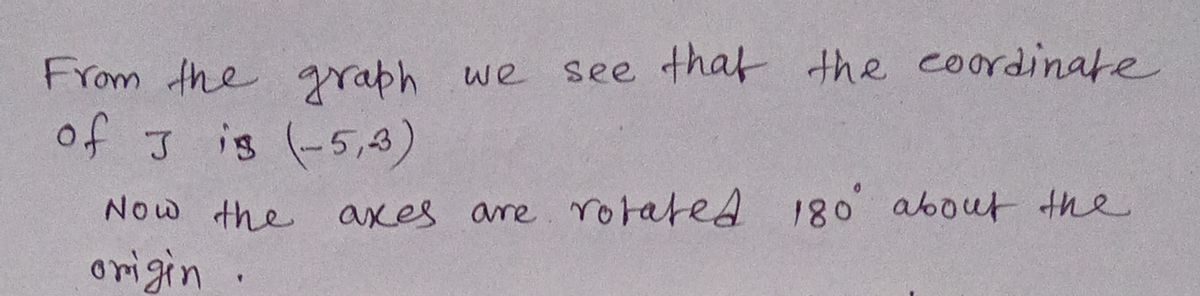 From the graph we see that the coordinate
of J is (-5,3)
Now the axes are rotated 180° about the
origin .